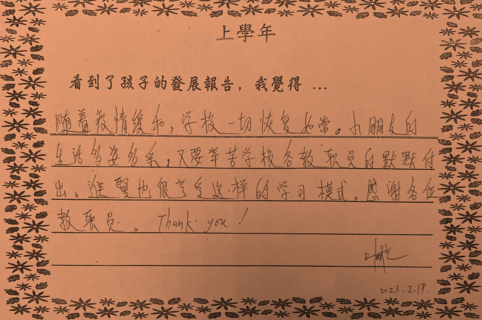 上學年
看到了孩子的發展報告，我覺得 ...
随着疫情缓和，学校一切恢复如常。小朋友的
生活多姿多彩，又要辛苦学校各教职员的默默付
出。进贤也很享受这样的学习模式。感谢各位
教职员。Thank you!
2023.2.19